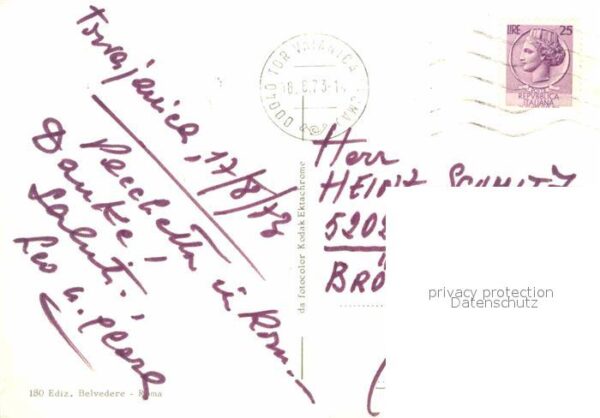 Torvajanica, 17/8/73
Pacchetto in Rom...
Danke!
Saluti!
Leo u.
Herr
HEINZ SCHMITZ
5202
BRÖ
00040 TOR VAIANICA
18.8.73-1
LIRE 25
REPVBBLICA
ITALIANA
da fotocolor Kodak Ektachrome
180 Ediz. Belvedere - Roma
privacy protection
Datenschutz